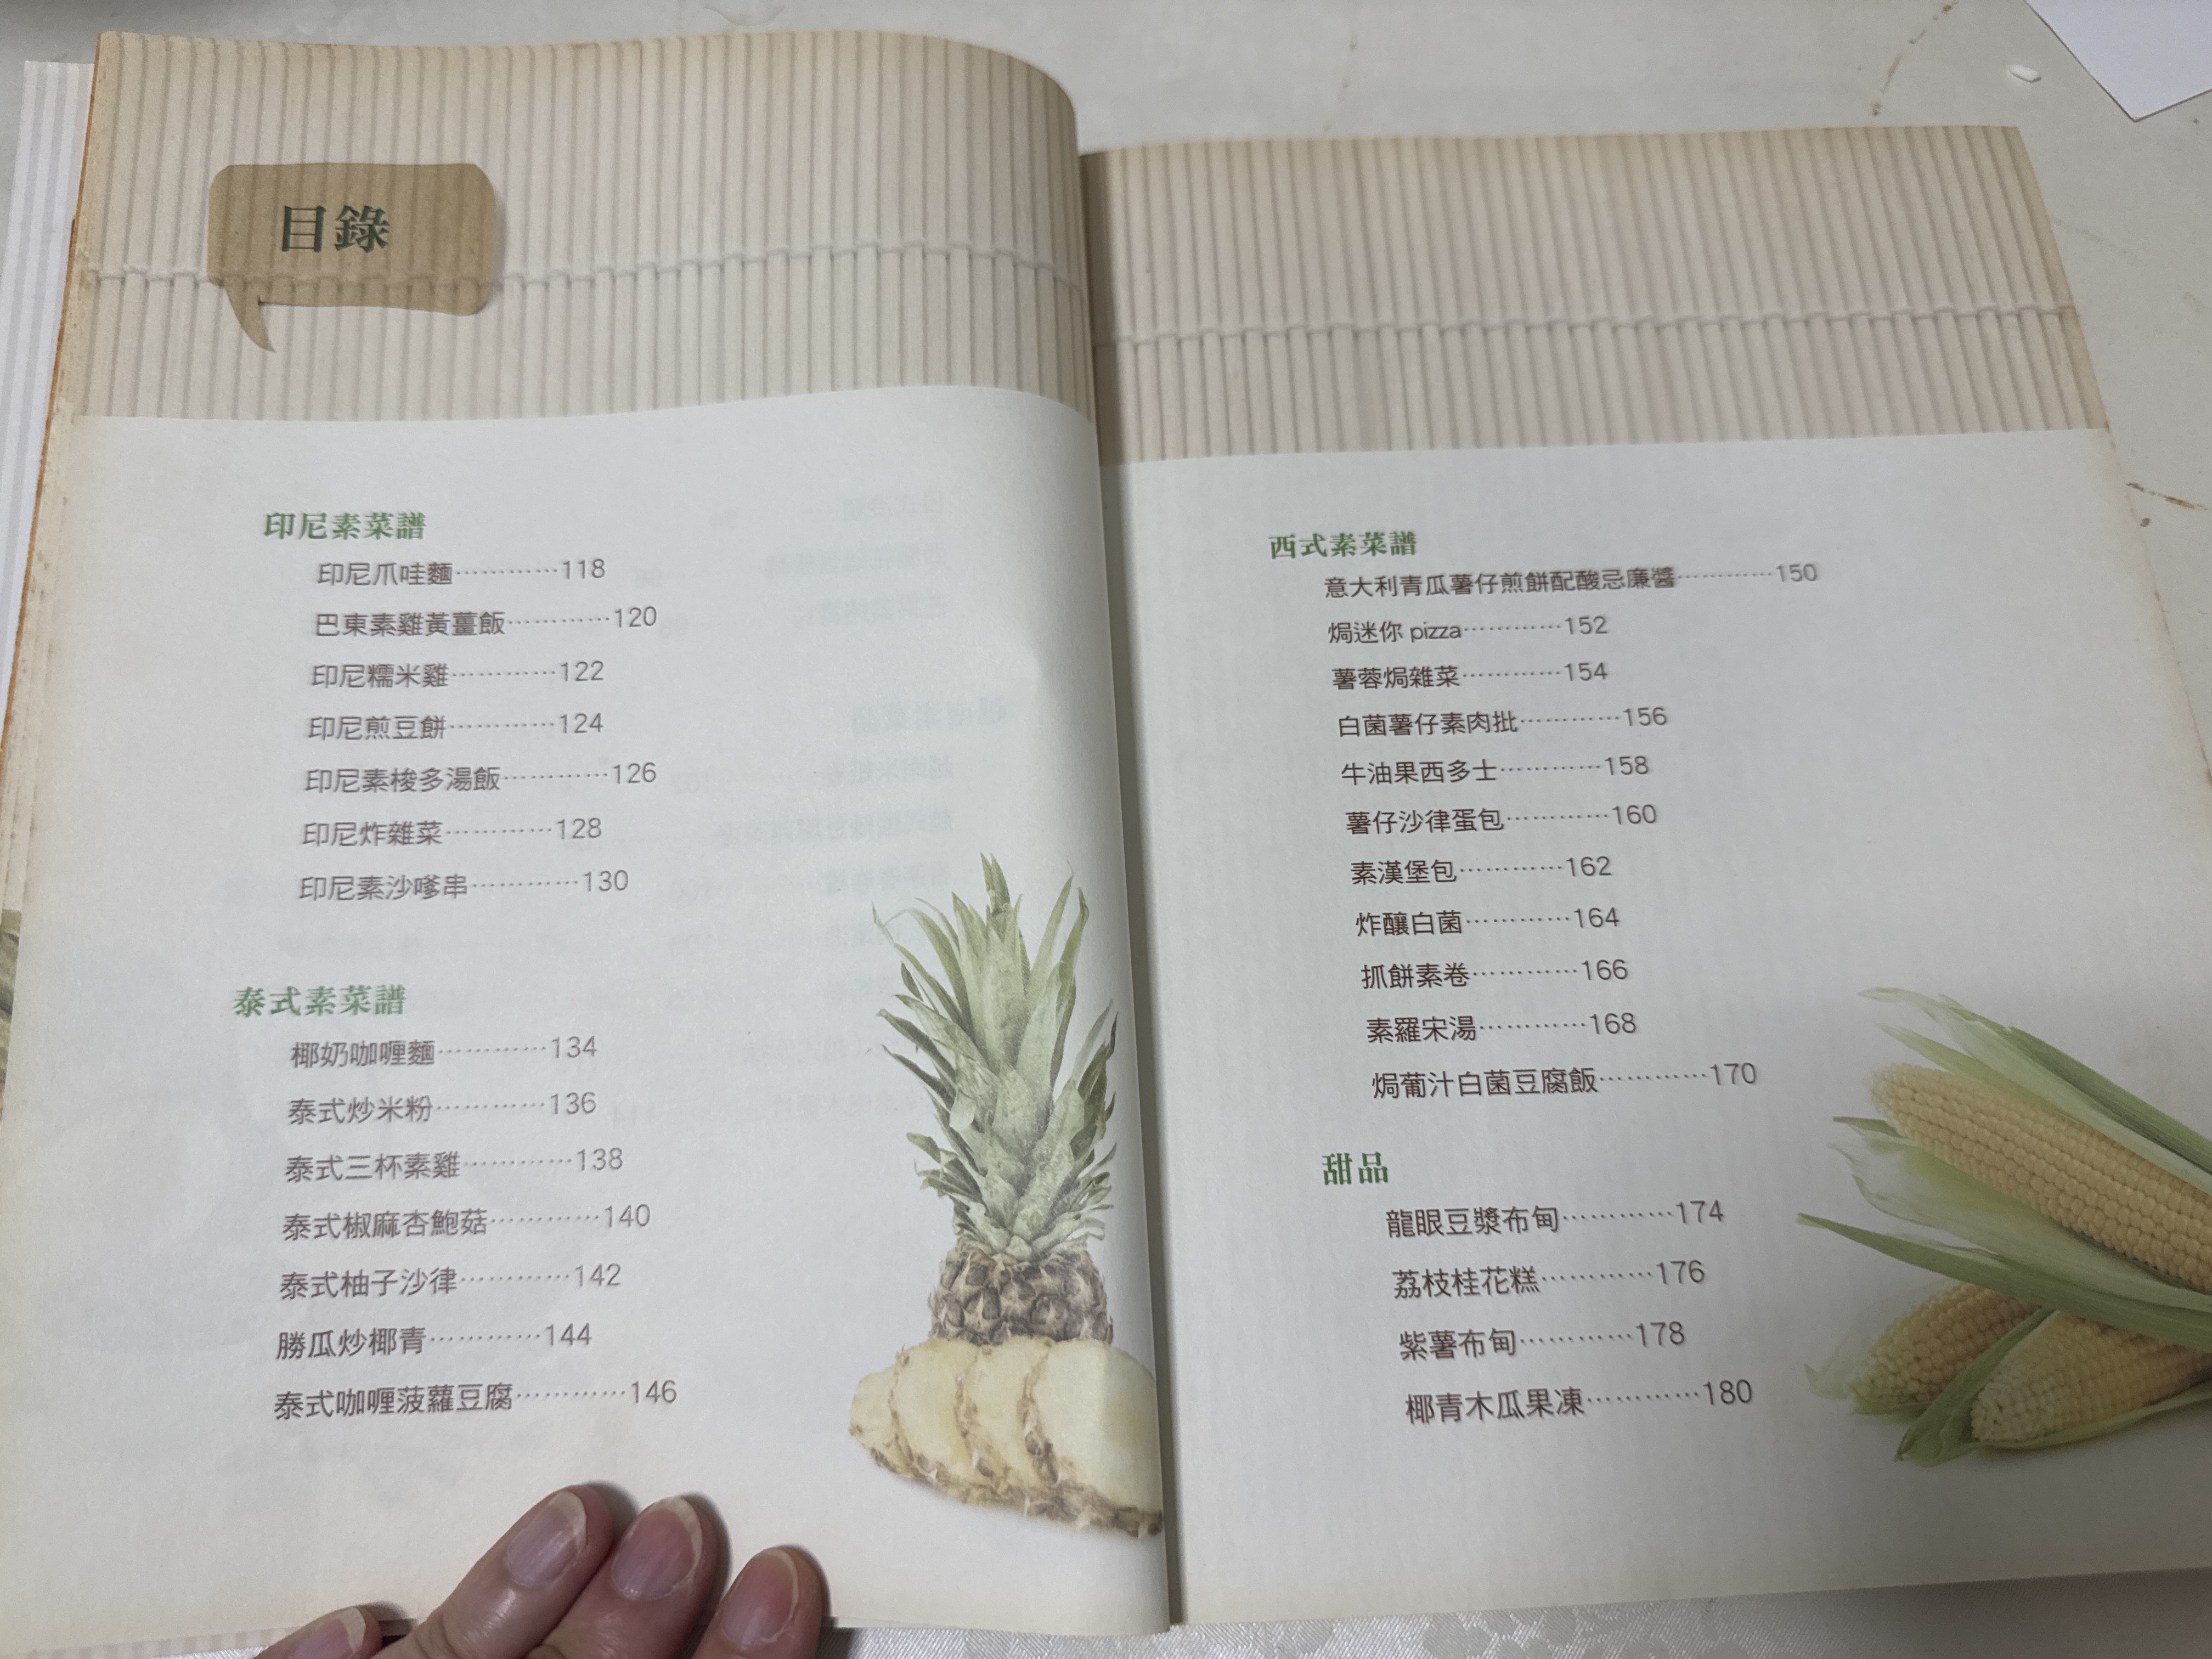 目錄
印尼素菜譜
印尼爪哇麵…………118
巴東素雞黃薑飯…………120
印尼糯米雞…………122
印尼煎豆餅…………124
印尼素梭多湯飯…………126
印尼炸雜菜…………128
印尼素沙嗲串…………130
泰式素菜譜
椰奶咖喱麵…………134
泰式炒米粉…………136
泰式三杯素雞…………138
泰式椒麻杏鮑菇…………140
泰式柚子沙律…………142
勝瓜炒椰青…………144
泰式咖喱菠蘿豆腐…………146
西式素菜譜
意大利青瓜薯仔煎餅配酸忌廉醬…………150
焗迷你 pizza…………152
薯蓉焗雜菜…………154
白菌薯仔素肉批…………156
牛油果西多士…………158
薯仔沙律蛋包…………160
素漢堡包…………162
炸釀白菌…………164
抓餅素卷…………166
素羅宋湯…………168
焗葡汁白菌豆腐飯…………170
甜品
龍眼豆漿布甸…………174
荔枝桂花糕…………176
紫薯布甸…………178
椰青木瓜果凍…………180